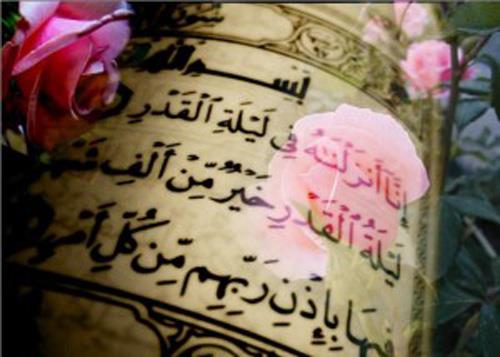 بِسْمِ اللَّهِ
إِنَّا أَنزَلْنَٰهُ فِي لَيْلَةِ ٱلْقَدْرِ
لَيْلَةُ ٱلْقَدْرِ خَيْرٌ مِّنْ أَلْفِ شَهْرٍ
فِيهَا بِإِذْنِ رَبِّهِم مِّن كُلِّ أَمْرٍ